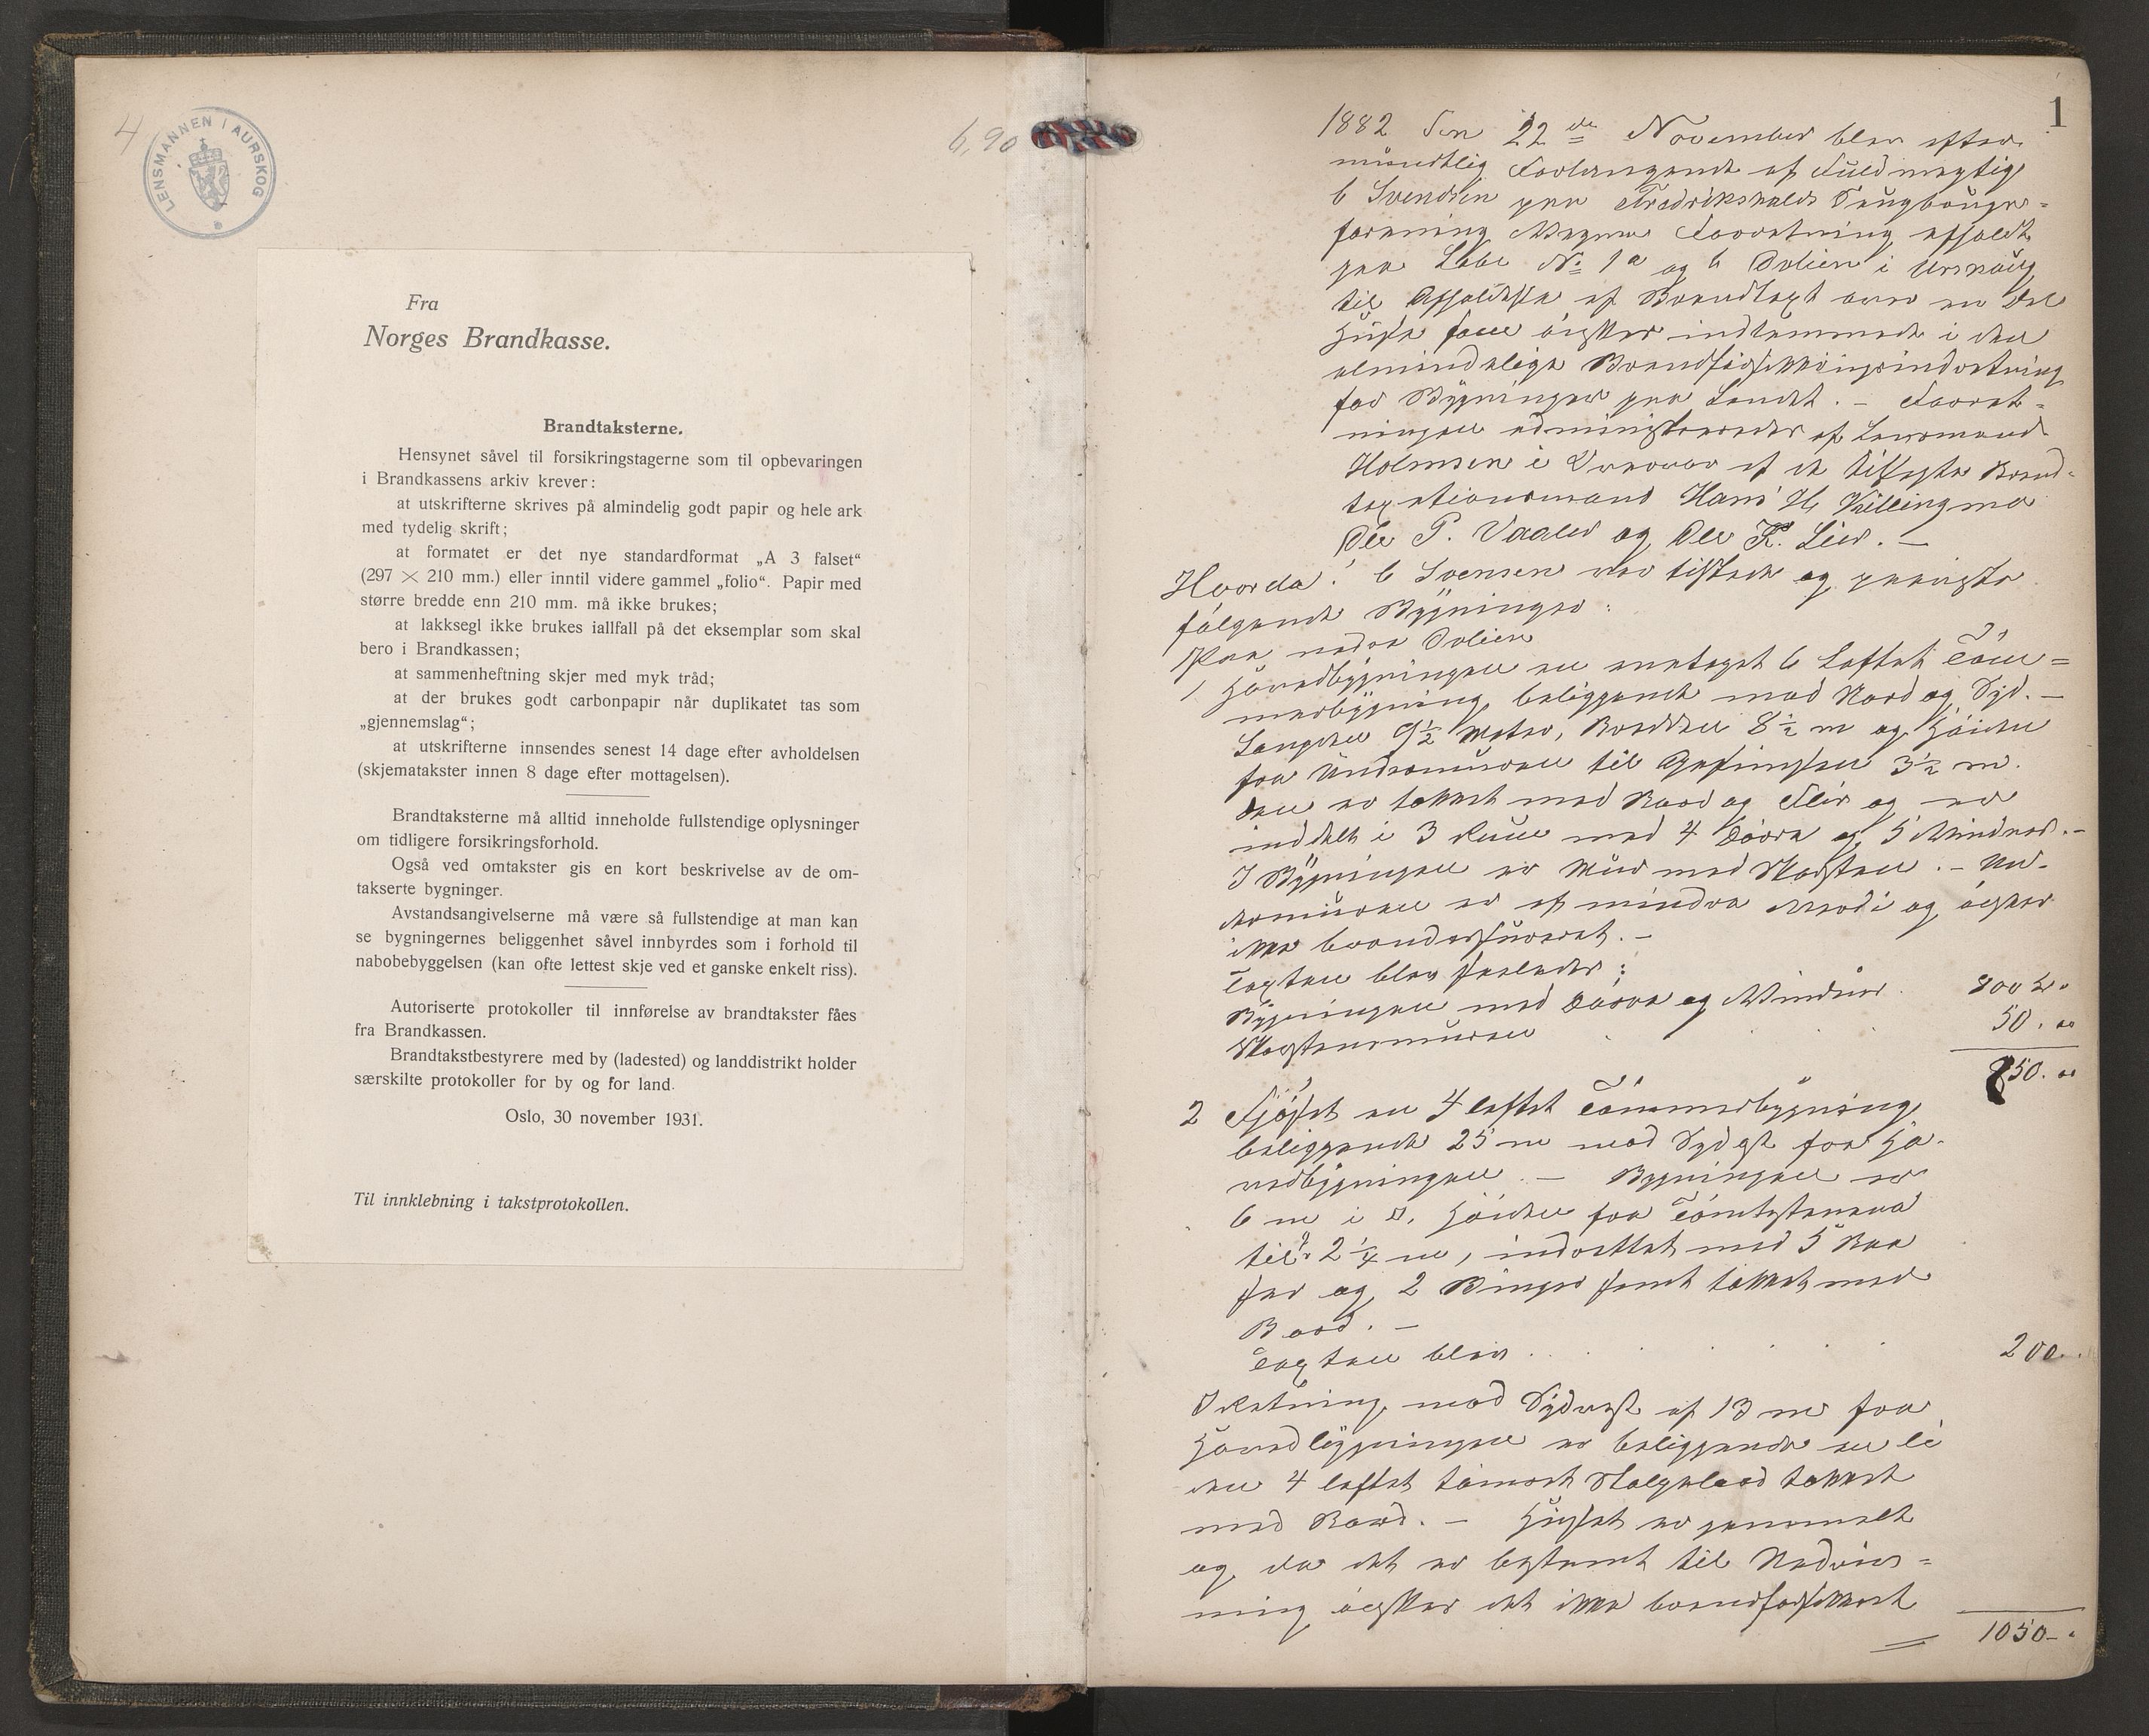 4
LENSMANNEN I AURSKOG
6,90
Fra
Norges Brandkasse.
Brandtaksterne.
Hensynet såvel til forsikringstagerne som til opbevaringen
i Brandkassens arkiv krever:
at utskrifterne skrives på almindelig godt papir og hele ark
med tydelig skrift;
at formatet er det nye standardformat „A 3 falset“
(297 × 210 mm.) eller inntil videre gammel „folio“. Papir med
større bredde enn 210 mm. må ikke brukes;
at lakksegl ikke brukes iallfall på det eksemplar som skal
bero i Brandkassen;
at sammenheftning skjer med myk tråd;
at der brukes godt carbonpapir når duplikatet tas som
„gjennemslag“;
at utskrifterne innsendes senest 14 dage efter avholdelsen
(skjematakster innen 8 dage efter mottagelsen).
Brandtaksterne må alltid inneholde fullstendige oplysninger
om tidligere forsikringsforhold.
Også ved omtakster gis en kort beskrivelse av de om-
takserte bygninger.
Avstandsangivelserne må være så fullstendige at man kan
se bygningernes beliggenhet såvel innbyrdes som i forhold til
nabobebyggelsen (kan ofte lettest skje ved et ganske enkelt riss).
Autoriserte protokoller til innførelse av brandtakster fåes
fra Brandkassen.
Brandtakstbestyrere med by (ladested) og landdistrikt holder
særskilte protokoller for by og for land.
Oslo, 30 november 1931.
Til innklebning i takstprotokollen.
1
1882 Den 22de November blev efter
mündtlig Forlangende af Füldmægtig
C Svendsen paa Fredrikshalds Saugbrugs-
forening Vegne Forretning afholdt
paa Løbe No 1a og b Dolien i Urskoug
til Afholdelse af Brandtaxt over en Del
Hüse som ønskes indlemmede i den
almindelige Brandforsikringsindretning
for Bygninger paa Landet. – Forret-
ningen administreredes af Lensmand
Holmsen i Nærvær af de tillagte Brand-
taxationsmænd Hans H. Killingmo
Ole P. Vaaler og Ole K. Lier. –
Hvorda! C Svensen var tilstede og paaviste
følgende Bygninger:
Paa nedre Dolien
1 Hovedbygningen en enetages 6 Loftet Tøm=
merbygning beliggende mod Nord og Syd. –
Længden 9½ Meter, Bredden 8½ m og Høiden
fra Undermüren til Gesimsen 3½ m.
Den er tækket med Bord og Flis og er
inddelt i 3 Rum med 4 Døre og 5 Vinduer. –
I Bygningen er Müur med Skorsten. – Un-
dermüren er af mindre Værdi og ønskes
ikke brandassüreret. –
Taxten blev saaledes:
Bygningen med Døre og Vindüer 800 Kr.
Skorstensmüren 50. "
850. "
2 Fjøset en 4 loftet Tømmerbygning
beliggende 25 m mod Sydøst fra Ho-
vedbygningen. – Bygningen er
6 m i □, Høiden fra Tomtestenene
til 2¼ m, indrettet med 5 Baa
ser og 2 Binger samt tækket med
Bord. –
Taxten blev 200.
I Retning mod Sydvest af 13 m fra
Hovedbygningen er beliggende en li
den 4 loftet tømret Stolpebod tækket
med Bord. – Hüset er gammelt
og da det er bestemt til Nedriv=
ning ønskes det ikke brandforsikret
1050 –